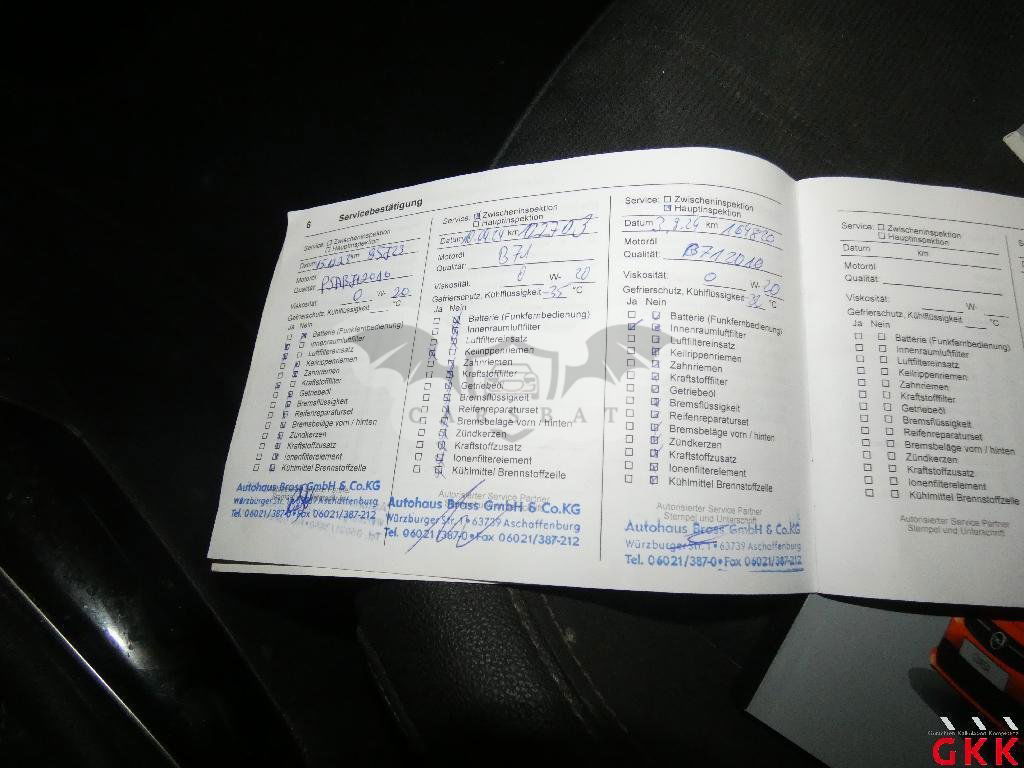 6 Servicebestätigung
Service: Zwischeninspektion
Hauptinspektion
Datum km
Motoröl
Qualität: PSAB712010
Viskosität: 0 W- 20
Gefrierschutz, Kühlflüssigkeit °C
Ja Nein
Batterie (Funkfernbedienung)
Innenraumluftfilter
Luftfiltereinsatz
Keilrippenriemen
Zahnriemen
Kraftstofffilter
Getriebeöl
Bremsflüssigkeit
Reifenreparaturset
Bremsbeläge vorn / hinten
Zündkerzen
Kraftstoffzusatz
Ionenfilterelement
Kühlmittel Brennstoffzelle
Autohaus Brass GmbH & Co.KG
Würzburger Str. Aschaffenburg
Tel. 06021/387-0 • Fax 06021/387-212
Service: Zwischeninspektion
Hauptinspektion
Datum km 102703
Motoröl
Qualität: B71
Viskosität: 0 W- 20
Gefrierschutz, Kühlflüssigkeit -35 °C
Ja Nein
Batterie (Funkfernbedienung)
Innenraumluftfilter
Luftfiltereinsatz
Keilrippenriemen
Zahnriemen
Kraftstofffilter
Getriebeöl
Bremsflüssigkeit
Reifenreparaturset
Bremsbeläge vorn / hinten
Zündkerzen
Kraftstoffzusatz
Ionenfilterelement
Kühlmittel Brennstoffzelle
Autorisierter Service Partner
Autohaus Brass GmbH & Co.KG
Würzburger Str. 1 • 63739 Aschaffenburg
Tel. 06021/387-0 • Fax 06021/387-212
Service: Zwischeninspektion
Hauptinspektion
Datum km
Motoröl
Qualität: B712010
Viskosität: 0 W- 20
Gefrierschutz, Kühlflüssigkeit °C
Ja Nein
Batterie (Funkfernbedienung)
Innenraumluftfilter
Luftfiltereinsatz
Keilrippenriemen
Zahnriemen
Kraftstofffilter
Getriebeöl
Bremsflüssigkeit
Reifenreparaturset
Bremsbeläge vorn / hinten
Zündkerzen
Kraftstoffzusatz
Ionenfilterelement
Kühlmittel Brennstoffzelle
Autorisierter Service Partner
Stempel und Unterschrift
Autohaus Brass GmbH & Co.KG
Würzburger Str. 1 • 63739 Aschaffenburg
Tel. 06021/387-0 • Fax 06021/387-212
Service: Zwischeninspektion
Hauptinspektion
Datum
km
Motoröl
Qualität:
Viskosität: W-
Gefrierschutz, Kühlflüssigkeit °C
Ja Nein
Batterie (Funkfernbedienung)
Innenraumluftfilter
Luftfiltereinsatz
Keilrippenriemen
Zahnriemen
Kraftstofffilter
Getriebeöl
Bremsflüssigkeit
Reifenreparaturset
Bremsbeläge vorn / hinten
Zündkerzen
Kraftstoffzusatz
Ionenfilterelement
Kühlmittel Brennstoffzelle
Autorisierter Service Partner
Stempel und Unterschrift
CARSBAT
GKK